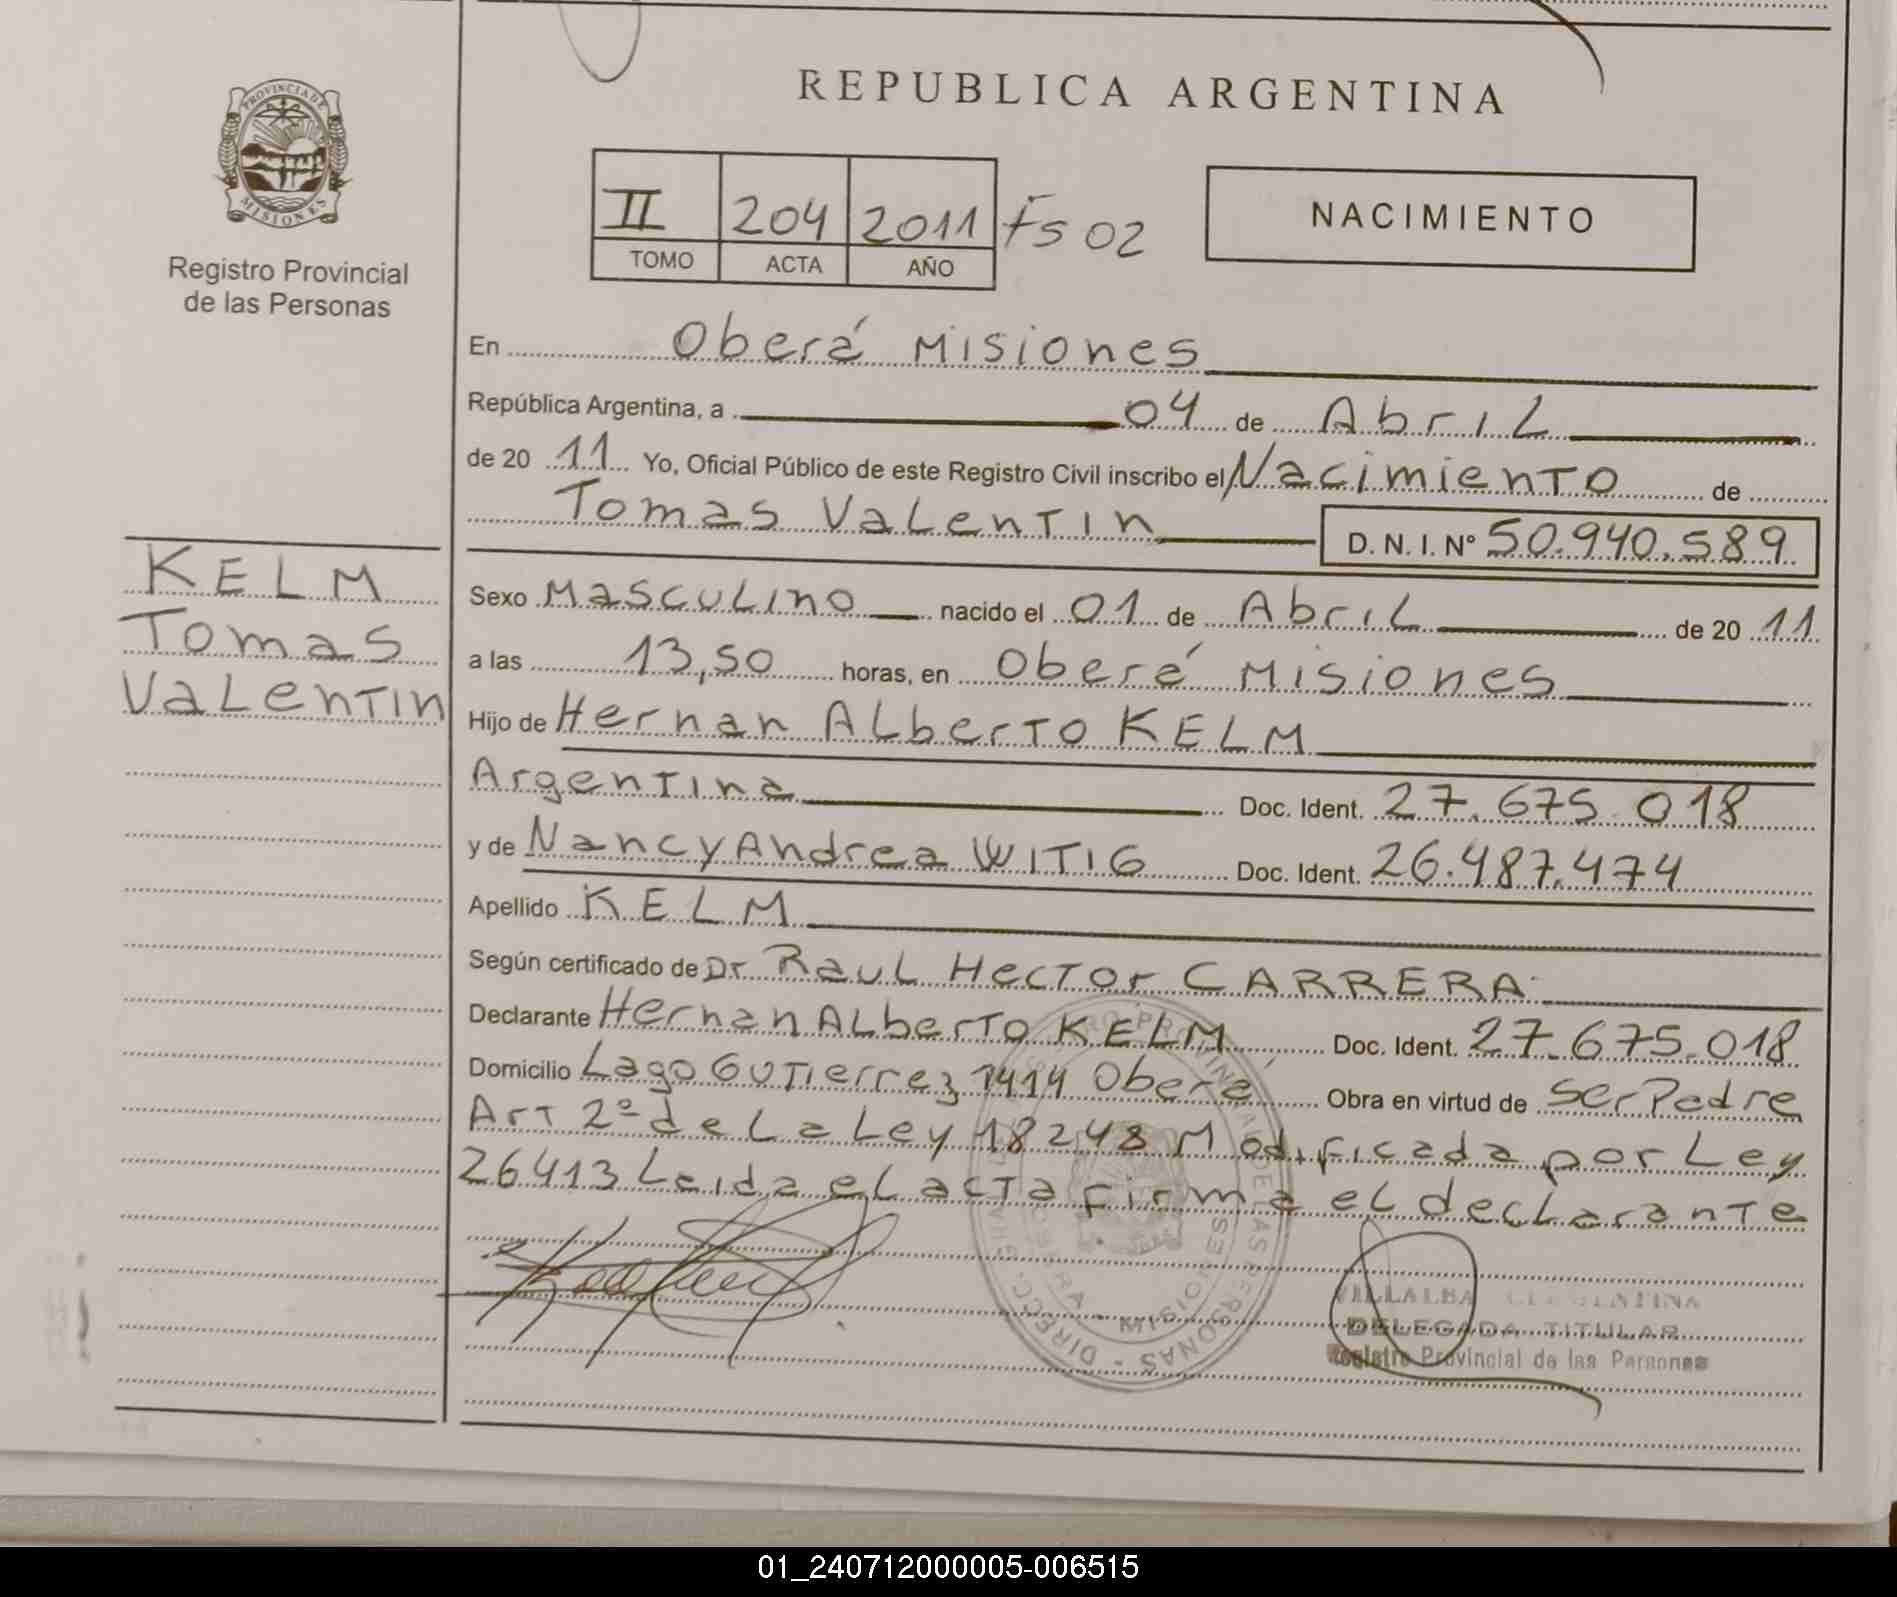 PROVINCIA DE
MISIONES
Registro Provincial
de las Personas
KELM
Tomas
Valentin
REPUBLICA ARGENTINA
II 204 2011 Fs 02
TOMO ACTA AÑO
NACIMIENTO
En Oberá Misiones
República Argentina, a 04 de Abril
de 20 11 Yo, Oficial Público de este Registro Civil inscribo el Nacimiento de
Tomas Valentin D. N. I. Nº 50.940.589
Sexo Masculino nacido el 01 de Abril de 20 11
a las 13,50 horas, en Oberá Misiones
Hijo de Hernan Alberto KELM
Argentina Doc. Ident. 27.675.018
y de Nancy Andrea WITIG Doc. Ident. 26.487.474
Apellido KELM
Según certificado de Dr Raul Hector CARRERA
Declarante Hernan Alberto KELM Doc. Ident. 27.675.018
Domicilio Lago Gutierrez 1414 Oberá Obra en virtud de Ser Padre
Art 2º de La Ley 18248 Modificada por Ley
26413 Leida el acta firma el declarante
VILLALBA
DELEGADA TITULAR
Registro Provincial de las Personas
01_240712000005-006515